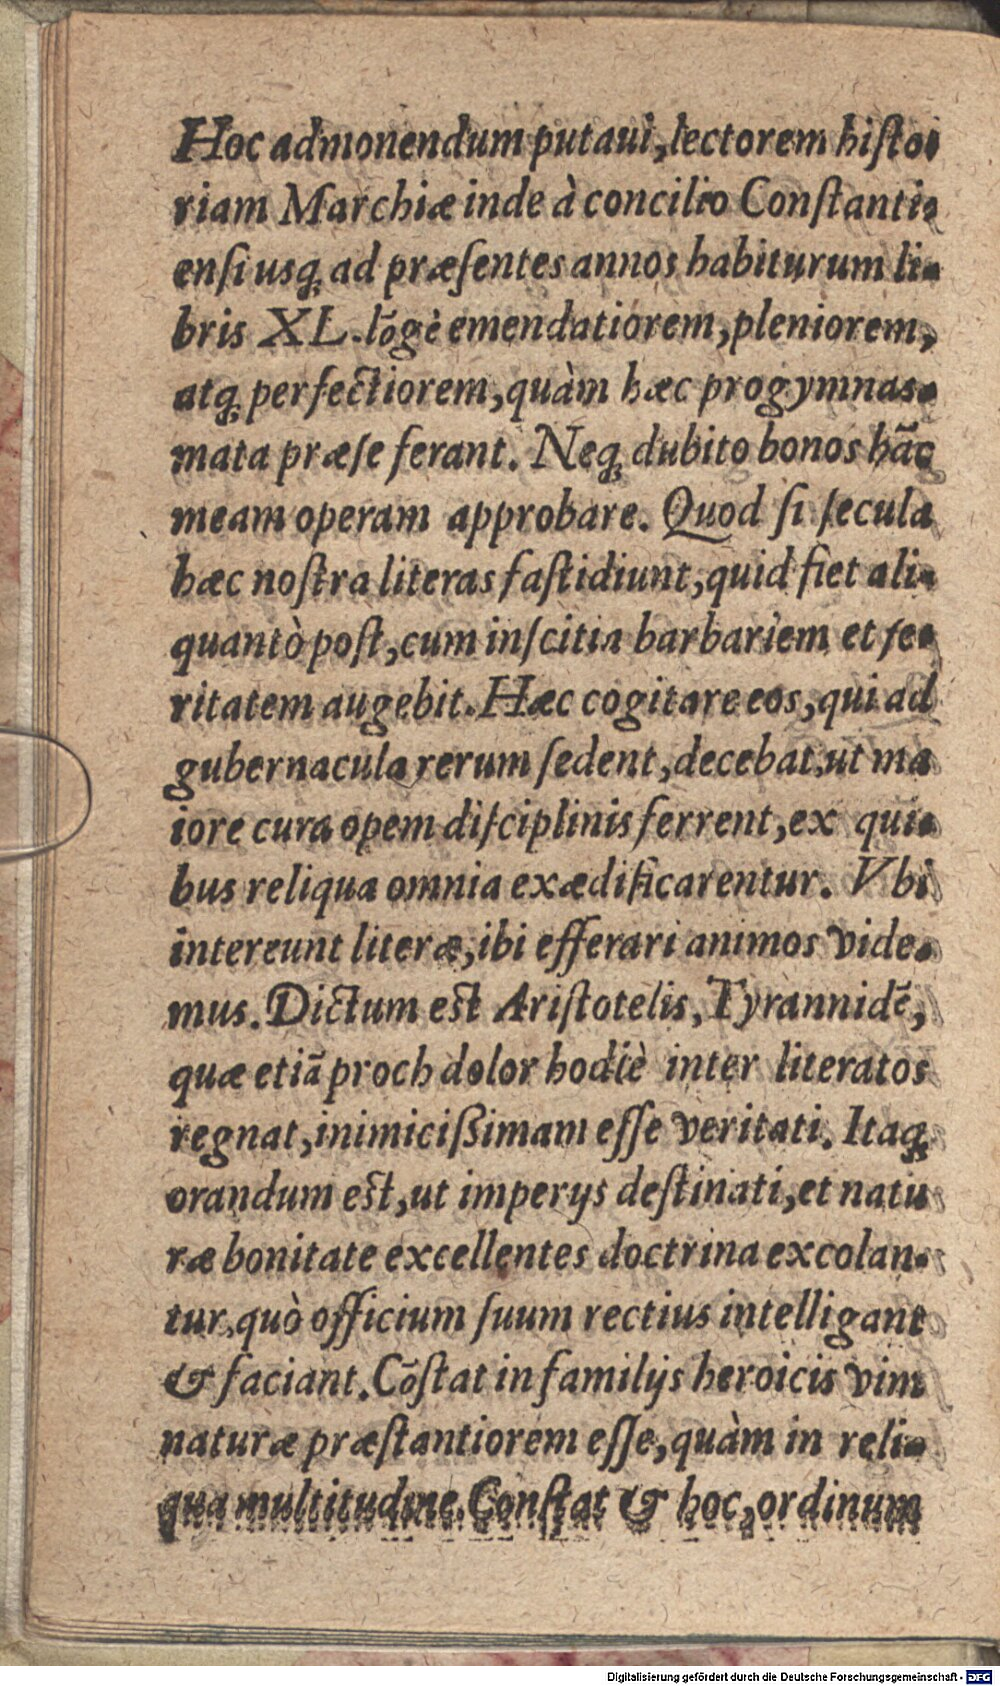 Hoc admonendum putaui, lectorem histo-
riam Marchiæ inde à concilio Constanti-
ensi usq̃ ad præsentes annos habiturum li-
bris XL. lõgè emendatiorem, pleniorem,
atq̃ perfectiorem, quàm hæc progymnas-
mata præ se ferant. Neq̃ dubito bonos hãc
meam operam approbare. Quod si secula
hæc nostra literas fastidiunt, quid fiet ali-
quantò post, cum inscitia barbariem et fe-
ritatem augebit. Hæc cogitare eos, qui ad
gubernacula rerum sedent, decebat, ut ma
iore cura opem disciplinis ferrent, ex qui-
bus reliqua omnia exædificarentur. Vbi
intereunt literæ, ibi efferari animos vide-
mus. Dictum est Aristotelis, Tyrannidẽ,
quæ etiã proch dolor hodiè inter literatos
regnat, inimicißimam esse veritati. Itaq̃
orandum est, ut imperijs destinati, et natu
ræ bonitate excellentes doctrina excolan-
tur, quò officium suum rectius intelligant
& faciant. Cõstat in familijs heroicis vim
naturæ præstantiorem esse, quàm in reli-
qua multitudine. Constat & hoc, ordinum
Digitalisierung gefördert durch die Deutsche Forschungsgemeinschaft - DFG